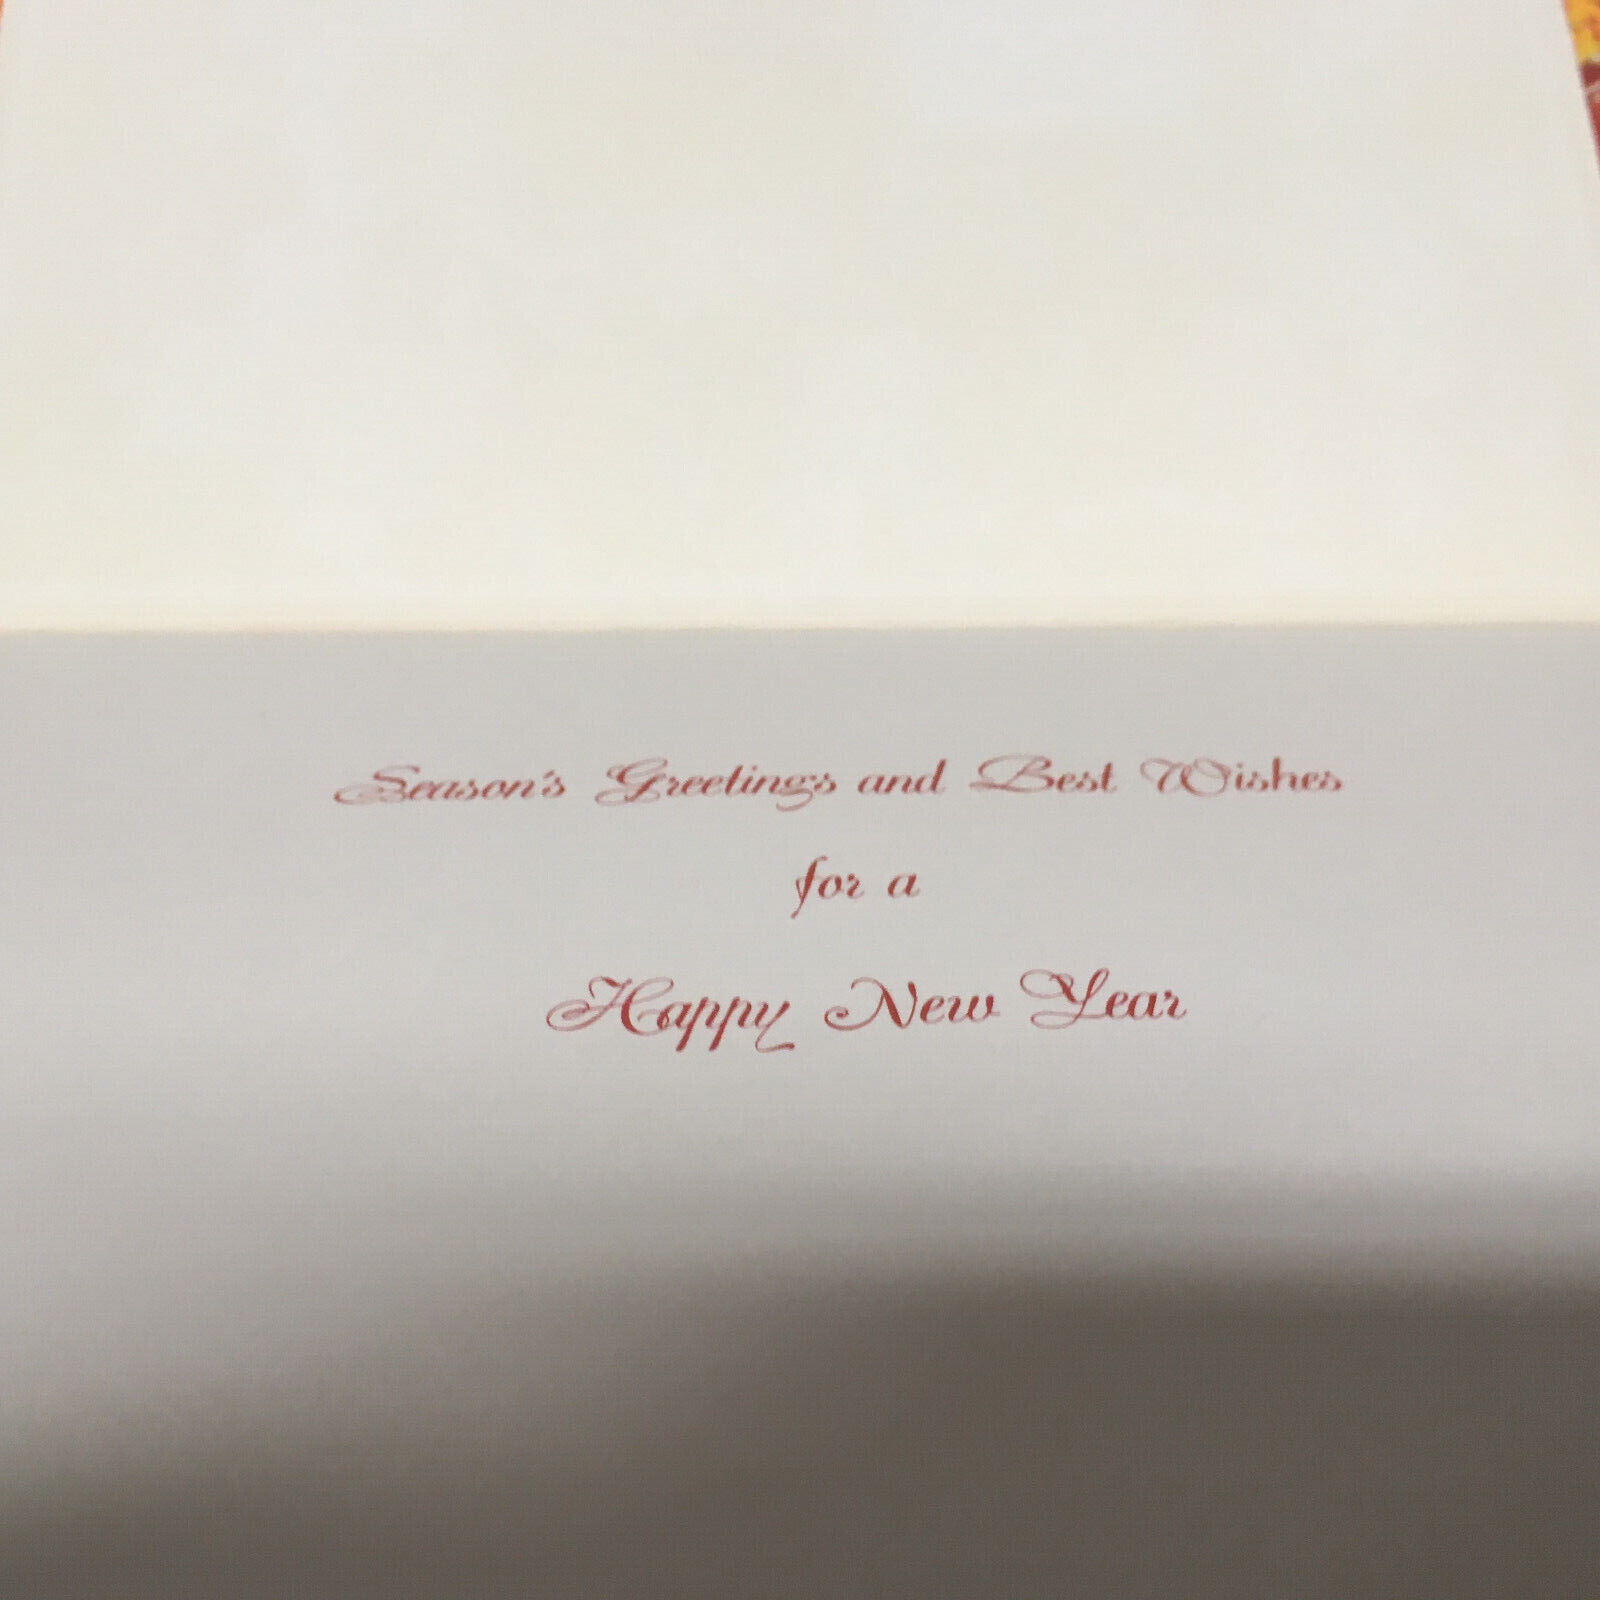 Season's Greetings and Best Wishes
for a
Happy New Year